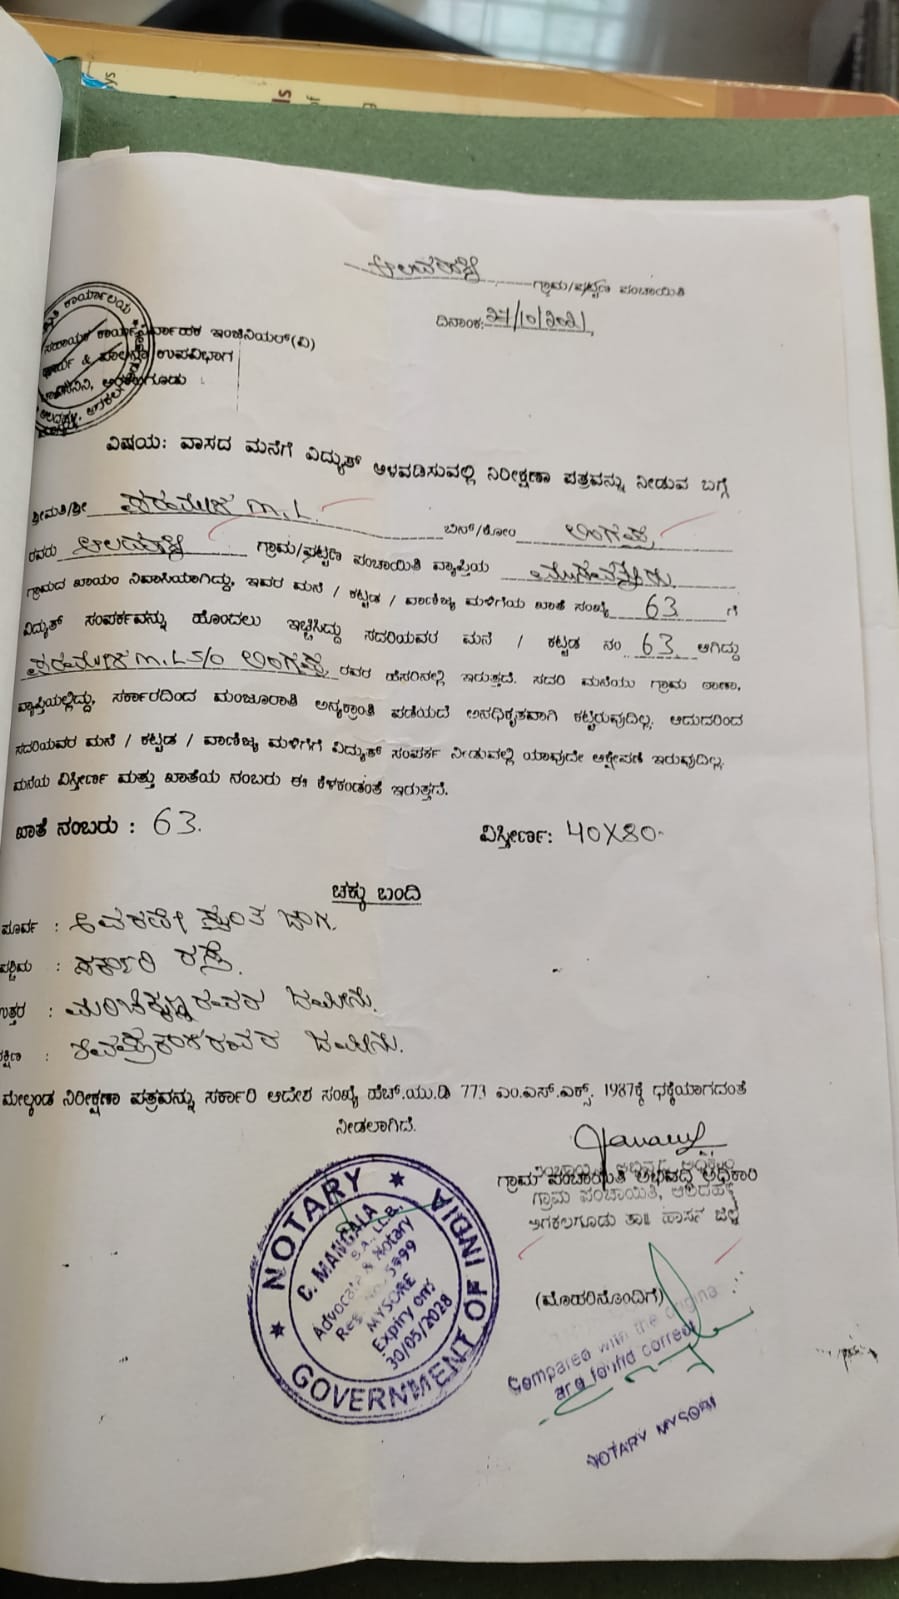 ಗ್ರಾಮ/ಪಟ್ಟಣ ಪಂಚಾಯಿತಿ
ದಿನಾಂಕ: 27/10/2021
ಸಹಾಯಕ ಕಾರ್ಯನಿರ್ವಾಹಕ ಇಂಜಿನಿಯರ್(ವಿ)
ಕಾರ್ಯ & ಪಾಲನಾ ಉಪವಿಭಾಗ
ವಿಷಯ: ವಾಸದ ಮನೆಗೆ ವಿದ್ಯುತ್ ಅಳವಡಿಸುವಲ್ಲಿ ನಿರೀಕ್ಷಣಾ ಪತ್ರವನ್ನು ನೀಡುವ ಬಗ್ಗೆ
ಶ್ರೀಮತಿ/ಶ್ರೀ ಪರಮೇಶ M.L. ಬಿನ್/ಕೋಂ ಲಿಂಗಪ್ಪ
ರವರು ಗ್ರಾಮ/ಪಟ್ಟಣ ಪಂಚಾಯಿತಿ ವ್ಯಾಪ್ತಿಯ
ಗ್ರಾಮದ ಖಾಯಂ ನಿವಾಸಿಯಾಗಿದ್ದು, ಇವರ ಮನೆ / ಕಟ್ಟಡ / ವಾಣಿಜ್ಯ ಮಳಿಗೆಯ ಖಾತೆ ಸಂಖ್ಯೆ 63 ಗೆ
ವಿದ್ಯುತ್ ಸಂಪರ್ಕವನ್ನು ಹೊಂದಲು ಇಚ್ಚಿಸಿದ್ದು ಸದರಿಯವರ ಮನೆ / ಕಟ್ಟಡ ನಂ 63 ಆಗಿದ್ದು
ಪರಮೇಶ M.L S/O ಲಿಂಗಪ್ಪ ರವರ ಹೆಸರಿನಲ್ಲಿ ಇರುತ್ತದೆ. ಸದರಿ ಮನೆಯು ಗ್ರಾಮ ಠಾಣಾ,
ವ್ಯಾಪ್ತಿಯಲ್ಲಿದ್ದು, ಸರ್ಕಾರದಿಂದ ಮಂಜೂರಾತಿ ಅನ್ಯಕ್ರಾಂತಿ ಪಡೆಯದೆ ಅನಧಿಕೃತವಾಗಿ ಕಟ್ಟಿರುವುದಿಲ್ಲ. ಆದುದರಿಂದ
ಸದರಿಯವರ ಮನೆ / ಕಟ್ಟಡ / ವಾಣಿಜ್ಯ ಮಳಿಗೆಗೆ ವಿದ್ಯುತ್ ಸಂಪರ್ಕ ನೀಡುವಲ್ಲಿ ಯಾವುದೇ ಆಕ್ಷೇಪಣೆ ಇರುವುದಿಲ್ಲ.
ಮನೆಯ ವಿಸ್ತೀರ್ಣ ಮತ್ತು ಖಾತೆಯ ನಂಬರು ಈ ಕೆಳಕಂಡಂತೆ ಇರುತ್ತದೆ.
ಖಾತೆ ನಂಬರು : 63. ವಿಸ್ತೀರ್ಣ: 40X80
ಚಕ್ಕು ಬಂದಿ
ಪೂರ್ವ : ಜಾಗ.
ಪಶ್ಚಿಮ : ಸರ್ಕಾರಿ ರಸ್ತೆ.
ಉತ್ತರ : ಜಮೀನು.
ದಕ್ಷಿಣ : ಜಮೀನು.
ಮೇಲ್ಕಂಡ ನಿರೀಕ್ಷಣಾ ಪತ್ರವನ್ನು ಸರ್ಕಾರಿ ಆದೇಶ ಸಂಖ್ಯೆ ಹೆಚ್.ಯು.ಡಿ 773 ಎಂ.ಎನ್.ಎಕ್ಸ್. 1987ಕ್ಕೆ ಧಕ್ಕೆಯಾಗದಂತೆ
ನೀಡಲಾಗಿದೆ.
ಗ್ರಾಮ ಪಂಚಾಯಿತಿ ಅಭಿವೃದ್ಧಿ ಅಧಿಕಾರಿ
ಗ್ರಾಮ ಪಂಚಾಯಿತಿ,
ಅರಕಲಗೂಡು ತಾ॥ ಹಾಸನ ಜಿಲ್ಲೆ
(ಮೊಹರಿನೊಂದಿಗೆ)
NOTARY
GOVERNMENT OF INDIA
C. MANGALA
B.A., LL.B.,
Advocate & Notary
Reg. No. 5999
MYSORE
Expiry on:
30/05/2028
Compared with the origina
are found correct
NOTARY MYSORE